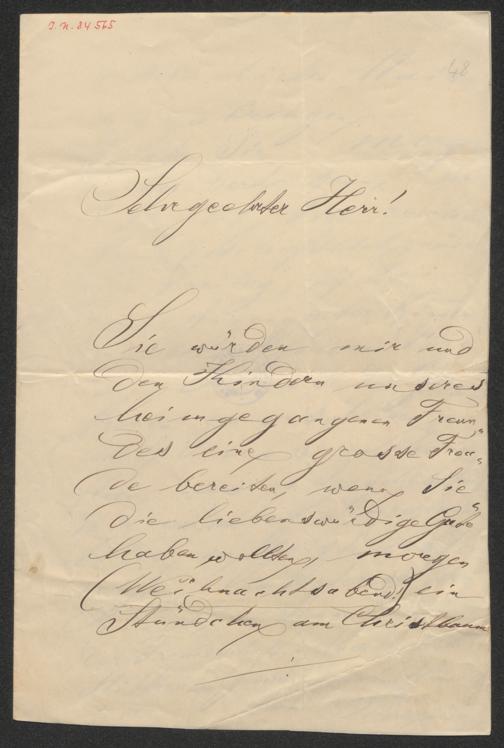 J.N. 84565
48
Sehr geehrter Herr!
Sie würden mir und
den Kindern unseres
heimgegangenen Freun„
des eine grosse Freu„
de bereiten, wenn Sie
die liebenswürdige Güte
haben wollten, morgen
(Weihnachtsabend!) ein
Stündchen am Christbaum